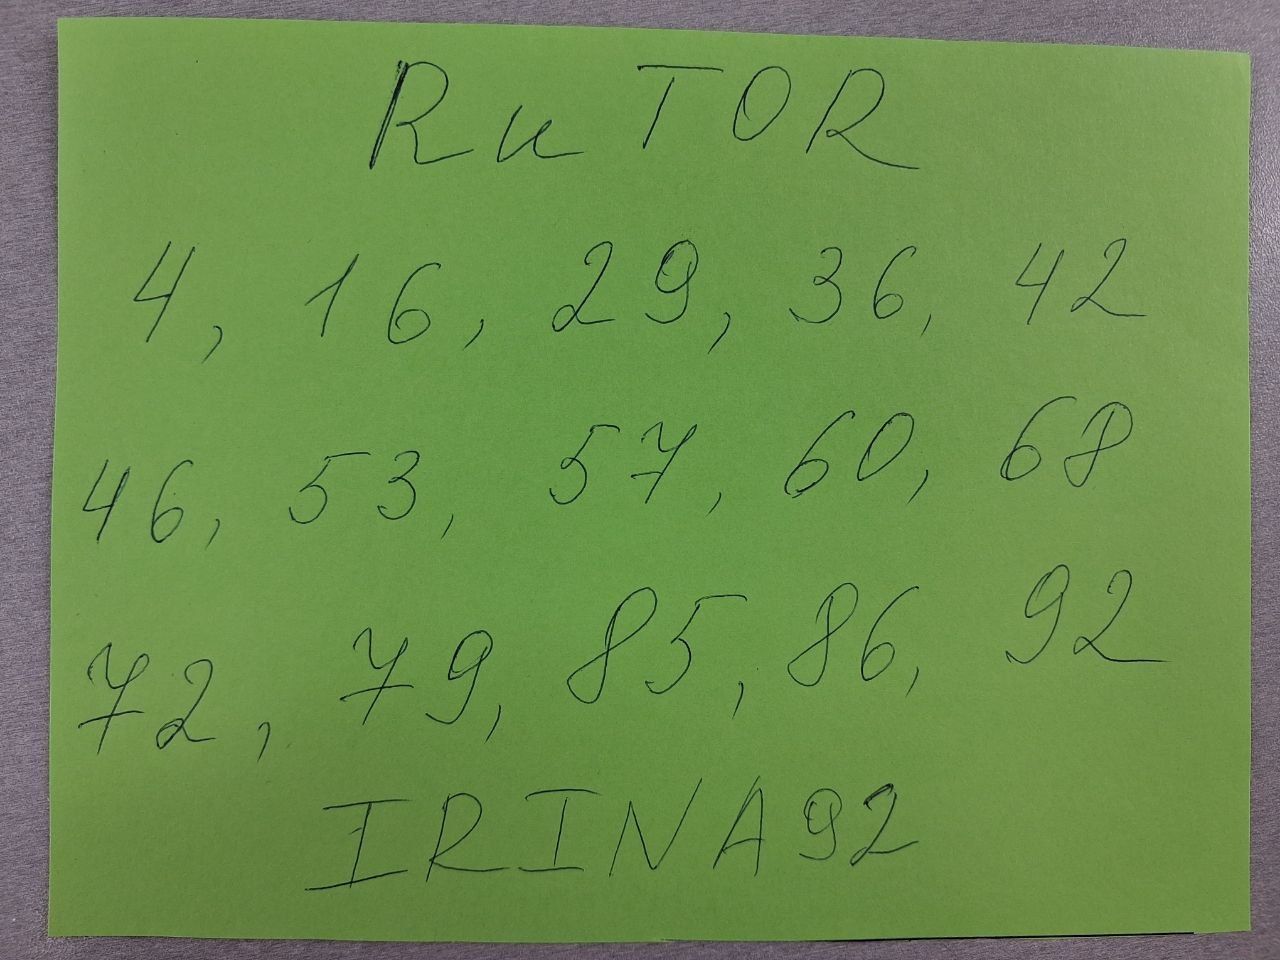 RuTOR
4, 16, 29, 36, 42
46, 53, 57, 60, 68
72, 79, 85, 86, 92
IRINA92